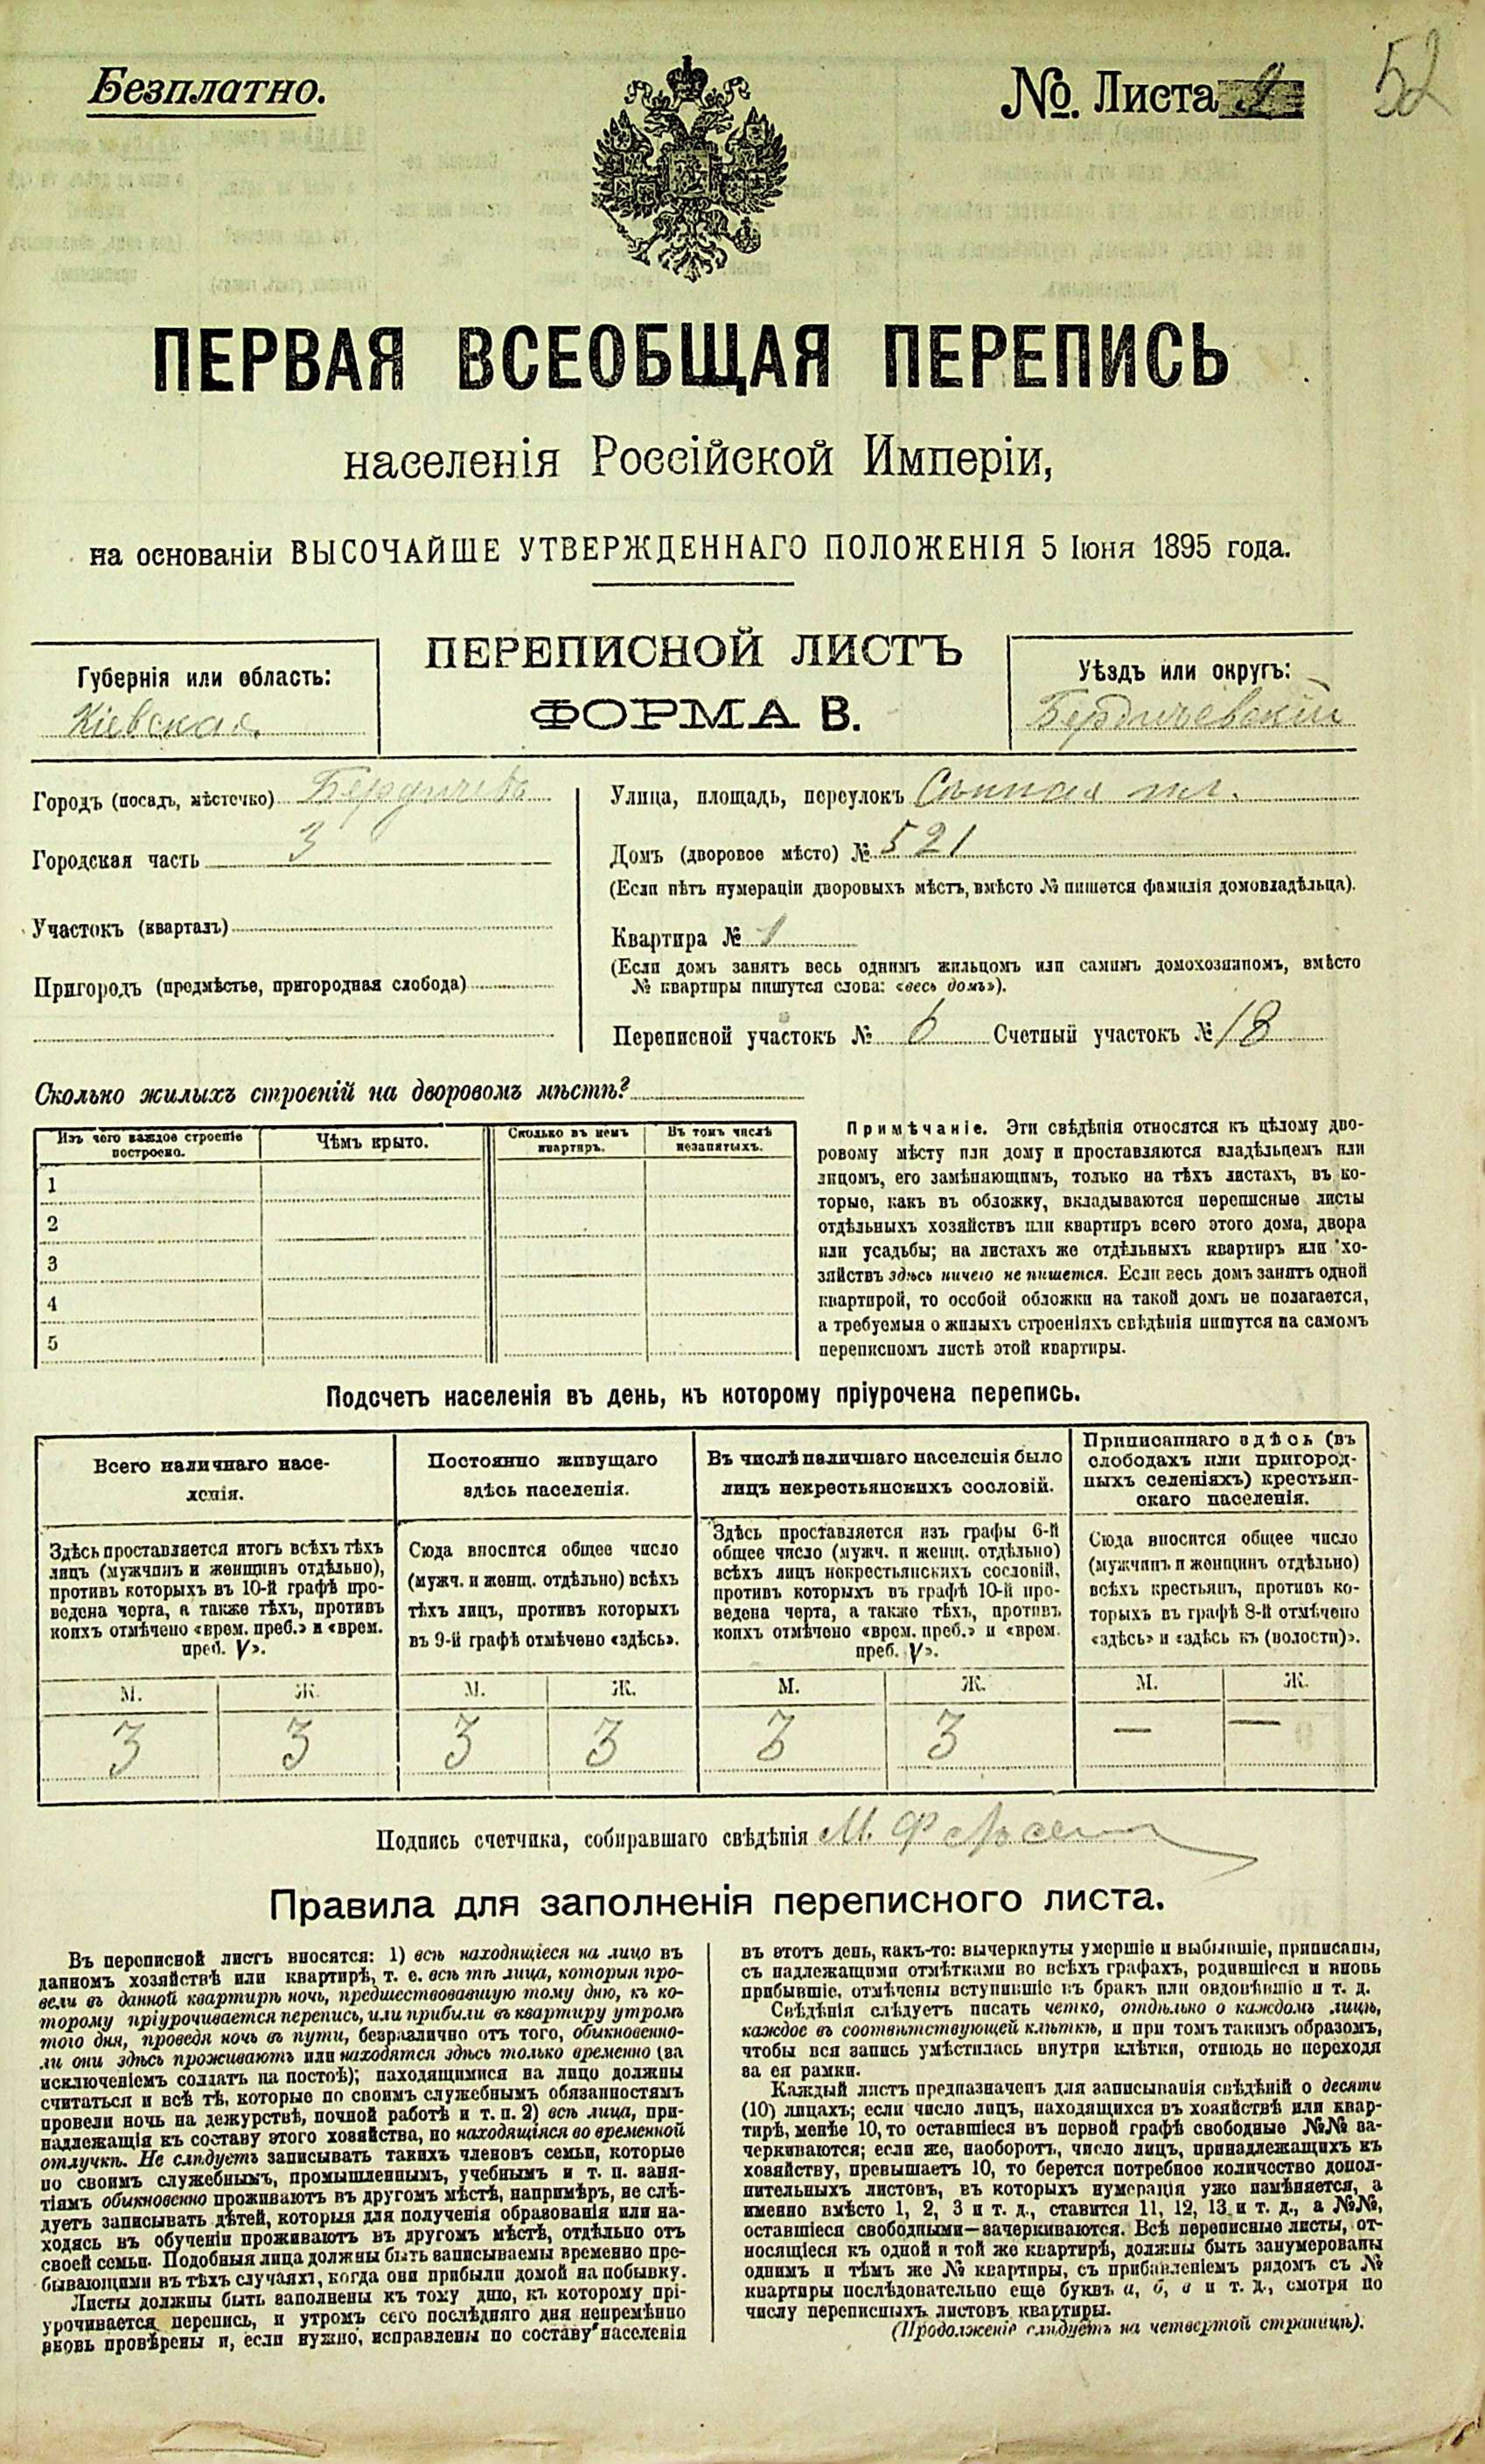 Безплатно.
№. Листа
52
ПЕРВАЯ ВСЕОБЩАЯ ПЕРЕПИСЬ
населенія Россійской Имперіи,
на основаніи ВЫСОЧАЙШЕ УТВЕРЖДЕННАГО ПОЛОЖЕНІЯ 5 Іюня 1895 года.
ПЕРЕПИСНОЙ ЛИСТЪ
ФОРМА В.
Губернія или область:
Кіевская
Уѣздъ или округъ:
Бердичевскій
Городъ (посадъ, мѣстечко) Бердичевъ
Городская часть 3
Участокъ (кварталъ)
Пригородъ (предмѣстье, пригородная слобода)
Улица, площадь, переулокъ Сѣнная пл.
Домъ (дворовое мѣсто) № 521
(Если нѣтъ нумераціи дворовыхъ мѣстъ, вмѣсто № пишется фамилія домовладѣльца).
Квартира № 1
(Если домъ занятъ весь однимъ жильцомъ или самимъ домохозяиномъ, вмѣсто
№ квартиры пишутся слова: «весь домъ»).
Переписной участокъ № 6 Счетный участокъ № 18
Сколько жилыхъ строеній на дворовомъ мѣстѣ?
Изъ чего каждое строеніе
построено.
Чѣмъ крыто.
Сколько въ немъ
квартиръ.
Въ томъ числѣ
незанятыхъ.
1
2
3
4
5
Примѣчаніе. Эти свѣдѣнія относятся къ цѣлому дво-
ровому мѣсту или дому и проставляются владѣльцемъ или
лицомъ, его замѣняющимъ, только на тѣхъ листахъ, въ ко-
торые, какъ въ обложку, вкладываются переписные листы
отдѣльныхъ хозяйствъ или квартиръ всего этого дома, двора
или усадьбы; на листахъ же отдѣльныхъ квартиръ или хо-
зяйствъ здѣсь ничего не пишется. Если весь домъ занятъ одной
квартирой, то особой обложки на такой домъ не полагается,
а требуемыя о жилыхъ строеніяхъ свѣдѣнія пишутся на самомъ
переписномъ листѣ этой квартиры.
Подсчетъ населенія въ день, къ которому пріурочена перепись.
Всего наличнаго насе-
ленія.
Здѣсь проставляется итогъ всѣхъ тѣхъ
лицъ (мужчинъ и женщинъ отдѣльно),
противъ которыхъ въ 10-й графѣ про-
ведена черта, а также тѣхъ, противъ
коихъ отмѣчено «врем. преб.» и «врем.
преб. V».
М. Ж.
3 3
Постоянно живущаго
здѣсь населенія.
Сюда вносится общее число
(мужч. и женщ. отдѣльно) всѣхъ
тѣхъ лицъ, противъ которыхъ
въ 9-й графѣ отмѣчено «здѣсь».
М. Ж.
3 3
Въ числѣ наличнаго населенія было
лицъ некрестьянскихъ сословій.
Здѣсь проставляется изъ графы 6-й
общее число (мужч. и женщ. отдѣльно)
всѣхъ лицъ некрестьянскихъ сословій,
противъ которыхъ въ графѣ 10-й про-
ведена черта, а также тѣхъ, противъ
коихъ отмѣчено «врем. преб.» и «врем.
преб. V».
М. Ж.
3 3
Приписаннаго здѣсь (въ
слободахъ или пригород-
ныхъ селеніяхъ) крестьян-
скаго населенія.
Сюда вносится общее число
(мужчинъ и женщинъ отдѣльно)
всѣхъ крестьянъ, противъ ко-
торыхъ въ графѣ 8-й отмѣчено
«здѣсь» и «здѣсь къ (волости)».
М. Ж.
— —
Подпись счетчика, собиравшаго свѣдѣнія М.
Правила для заполненія переписного листа.
Въ переписной листъ вносятся: 1) всѣ находящіеся на лицо въ
данномъ хозяйствѣ или квартирѣ, т. е. всѣ тѣ лица, которыя про-
вели въ данной квартирѣ ночь, предшествовавшую тому дню, къ ко-
торому пріурочивается перепись, или прибыли въ квартиру утромъ
того дня, проведя ночь въ пути, безразлично отъ того, обыкновенно-
ли они здѣсь проживаютъ или находятся здѣсь только временно (за
исключеніемъ солдатъ на постоѣ); находящимися на лицо должны
считаться и всѣ тѣ, которые по своимъ служебнымъ обязанностямъ
провели ночь на дежурствѣ, ночной работѣ и т. п. 2) всѣ лица, при-
надлежащія къ составу этого хозяйства, но находящіяся во временной
отлучкѣ. Не слѣдуетъ записывать такихъ членовъ семьи, которые
по своимъ служебнымъ, промышленнымъ, учебнымъ и т. п. заня-
тіямъ обыкновенно проживаютъ въ другомъ мѣстѣ, напримѣръ, не слѣ-
дуетъ записывать дѣтей, которыя для полученія образованія или на-
ходясь въ обученіи проживаютъ въ другомъ мѣстѣ, отдѣльно отъ
своей семьи. Подобныя лица должны быть записываемы временно пре-
бывающими въ тѣхъ случаяхъ, когда они прибыли домой на побывку.
Листы должны быть заполнены къ тому дню, къ которому прі-
урочивается перепись, и утромъ сего послѣдняго дня непремѣнно
вновь провѣрены и, если нужно, исправлены по составу населенія
въ этотъ день, какъ-то: вычеркнуты умершіе и выбывшіе, приписаны,
съ надлежащими отмѣтками во всѣхъ графахъ, родившіеся и вновь
прибывшіе, отмѣчены вступившіе въ бракъ или овдовѣвшіе и т. д.
Свѣдѣнія слѣдуетъ писать четко, отдѣльно о каждомъ лицѣ,
каждое въ соотвѣтствующей клѣткѣ, и при томъ такимъ образомъ,
чтобы вся запись умѣстилась внутри клѣтки, отнюдь не переходя
за ея рамки.
Каждый листъ предназначенъ для записыванія свѣдѣній о десяти
(10) лицахъ; если число лицъ, находящихся въ хозяйствѣ или квар-
тирѣ, менѣе 10, то оставшіеся въ первой графѣ свободные №№ за-
черкиваются; если же, наоборотъ, число лицъ, принадлежащихъ къ
хозяйству, превышаетъ 10, то берется потребное количество допол-
нительныхъ листовъ, въ которыхъ нумерація уже измѣняется, а
именно вмѣсто 1, 2, 3 и т. д., ставится 11, 12, 13 и т. д., а №№,
оставшіеся свободными—зачеркиваются. Всѣ переписные листы, от-
носящіеся къ одной и той же квартирѣ, должны быть занумерованы
однимъ и тѣмъ же № квартиры, съ прибавленіемъ рядомъ съ №
квартиры послѣдовательно еще буквъ а, б, в и т. д., смотря по
числу переписныхъ листовъ квартиры.
(Продолженіе слѣдуетъ на четвертой страницѣ).